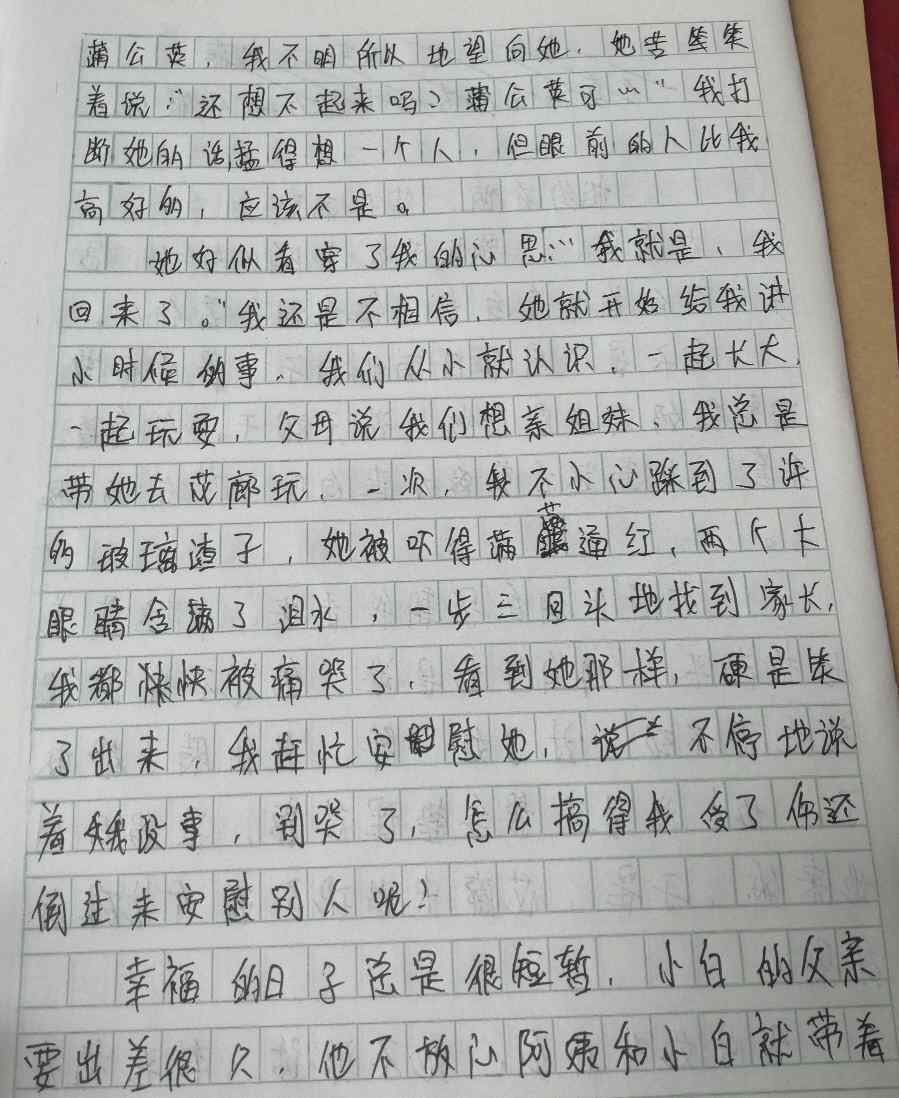 蒲公英，我不明所以地望向她，她苦笑笑
着说："还想不起来吗？蒲公英可……"我打
断她的话，猛得想一个人，但眼前的人比我
高好的，应该不是。
她好似看穿了我的心思："我就是，我
回来了。"我还是不相信，她就开始给我讲
小时候的事，我们从小就认识，一起长大，
一起玩耍，父母说我们想亲姐妹，我总是
带她去花廊玩，一次，我不小心踩到了许
的玻璃渣子，她被吓得满通红，两个大
眼睛含满了泪水，一步三回头地找到家长，
我都快快被痛哭了，看到她那样，硬是笑
了出来，我赶忙安慰她，不停地说
着我没事，别哭了，怎么搞得我受了伤还
倒过来安慰别人呢！
幸福的日子总是很短暂，小白的父亲
要出差很久，他不放心阿姨和小白就带着